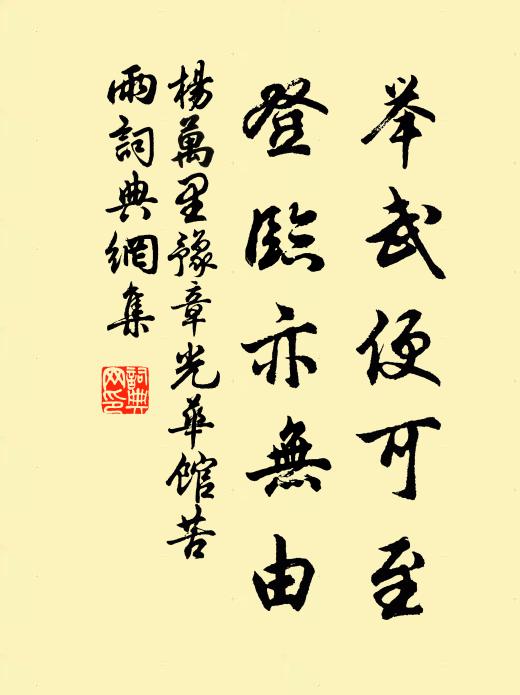 举武便可至
登臨亦無由
楊萬里豫章光華館苦
雨詞典網集
詞典
网印